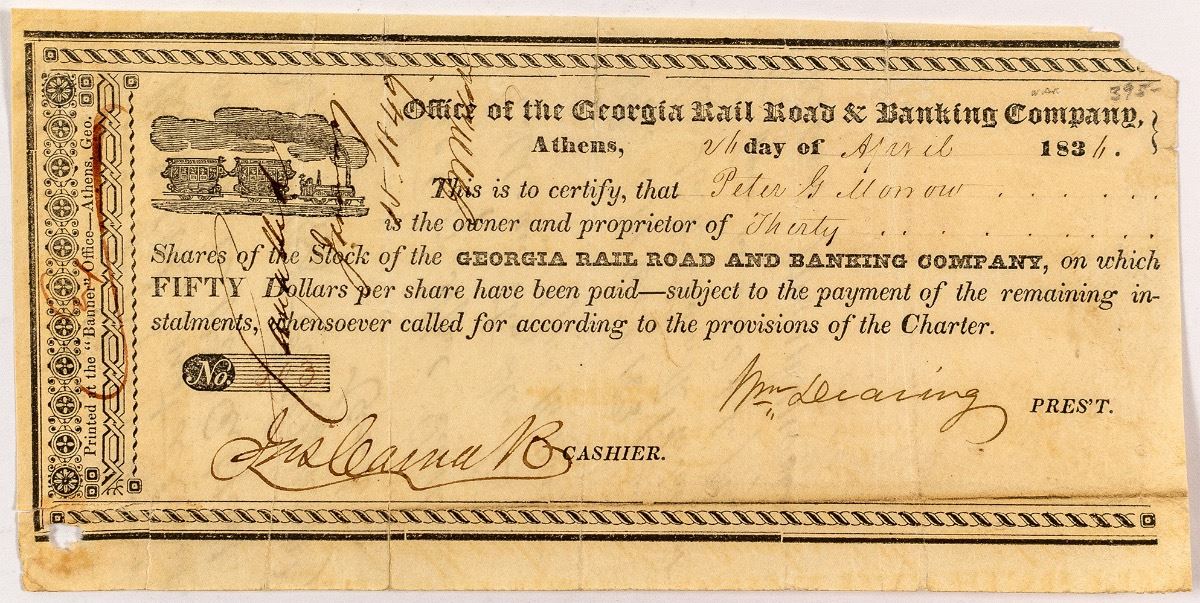 Office of the Georgia Rail Road & Banking Company,
Athens, 26 day of April 1836.
This is to certify, that Peter G Morrow
is the owner and proprietor of Thirty
Shares of the Stock of the GEORGIA RAIL ROAD AND BANKING COMPANY, on which
FIFTY Dollars per share have been paid—subject to the payment of the remaining in-
stalments, whensoever called for according to the provisions of the Charter.
No. 313
Wm Dearing PRES'T.
Jas Camak CASHIER.
Printed at the "Banner" Office—Athens Geo.
Cancelled
15 1849
395-